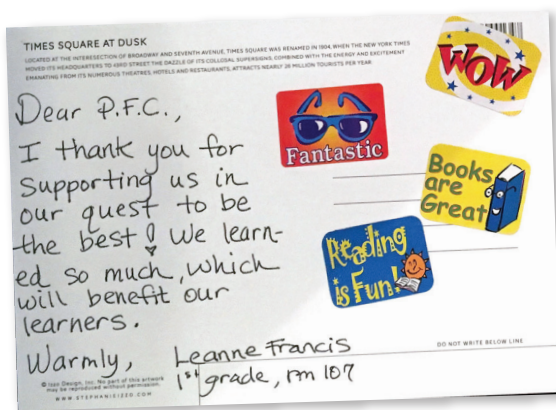 TIMES SQUARE AT DUSK
LOCATED AT THE INTERESECTION OF BROADWAY AND SEVENTH AVENUE, TIMES SQUARE WAS RENAMED IN 1904, WHEN THE NEW YORK TIMES
MOVED ITS HEADQUARTERS TO 42ND STREET THE DAZZLE OF ITS COLLOSAL SUPERSIGNS, COMBINED WITH THE ENERGY AND EXCITEMENT
EMANATING FROM ITS NUMEROUS THEATRES, HOTELS AND RESTAURANTS, ATTRACTS NEARLY 26 MILLION TOURISTS PER YEAR.
WOW
Dear P.F.C.,
Fantastic
I thank you for
supporting us in
our quest to be
the best! We learn-
ed so much, which
will benefit our
learners.
Books
are
Great
Reading
is Fun!
Warmly, Leanne Francis
1st grade, rm 107
DO NOT WRITE BELOW LINE
© Izzo Design, Inc. No part of this artwork
may be reproduced without permission.
WWW.STEPHANIEIZZO.COM